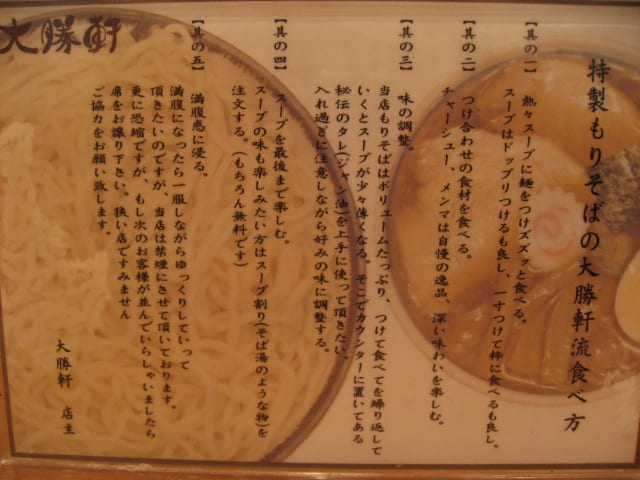 特製もりそばの大勝軒流食べ方
【其の一】 熱々スープに麺をつけズズッと食べる。
スープはドップリつけるも良し、一寸つけて粋に食べるも良し。
【其の二】 つけ合わせの食材を食べる。
チャーシュー、メンマは自慢の逸品、深い味わいを楽しむ。
【其の三】 味の調整。
当店もりそばはボリュームたっぷり、つけて食べてを繰り返して
いくとスープが少々薄くなる。そこでカウンターに置いてある
秘伝のタレ(ジャン油)を上手に使って頂きたい。
入れ過ぎに注意しながら好みの味に調整する。
【其の四】 スープを最後まで楽しむ。
スープの味も楽しみたい方はスープ割り(そば湯のような物)を
注文する。(もちろん無料です)
【其の五】 満腹感に浸る。
満腹になったら一服しながらゆっくりしていって
頂きたいのですが、当店は禁煙にさせて頂いております。
更に恐縮ですが、もし次のお客様が並んでいらしゃいましたら
席をお譲り下さい。狭い店ですみません
ご協力をお願い致します。
大勝軒 店主
大勝軒